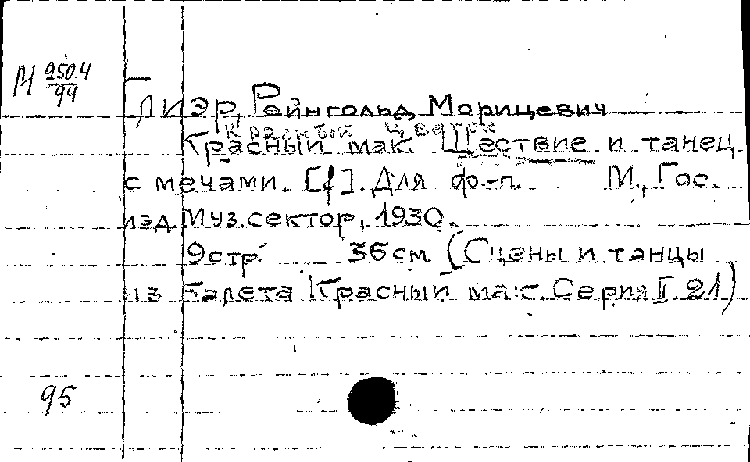 М 250.4/94
Глиэр, Рейнгольд Морицевич
Красный цветок
Красный мак. Шествие и танец
с мечами. [f]. Для ф-п. М., Гос.
изд. Муз. сектор, 1930.
9 стр. 36 см (Сцены и танцы
из балета Красный мак. Серия I. 21)
95